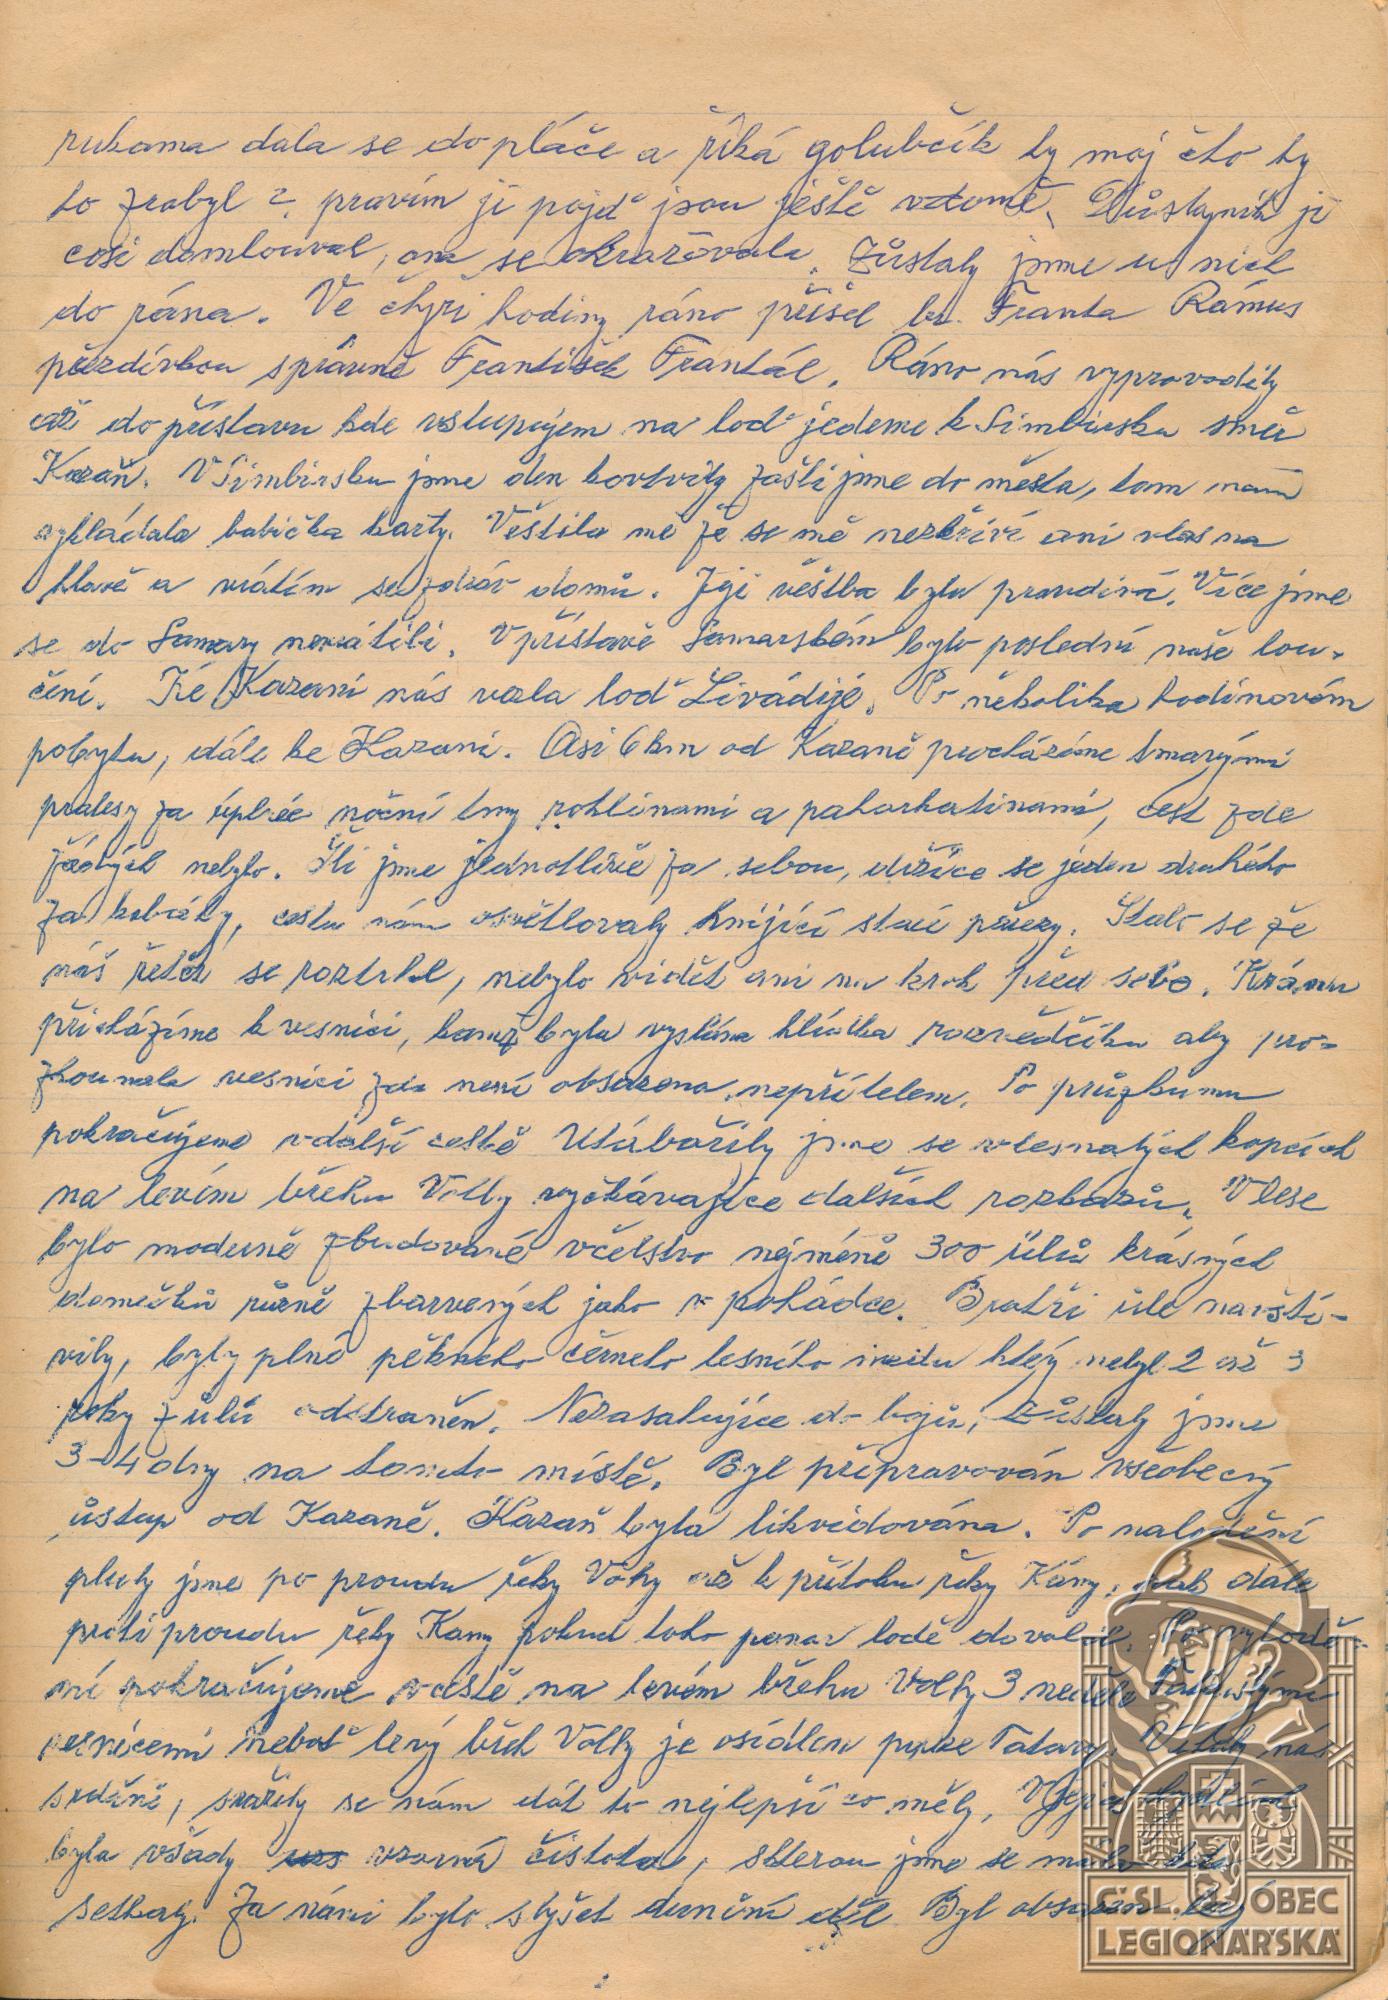 rukama dala se do pláče a říká golubčík ty moj čto ty
to zrobyl?, pravím jí pojď jsou ještě v tomě, Důstojník jí
cosi domlouval, ona se okrašovala. Zůstaly jsme u nich
do rána. Ve čtyři hodiny ráno přišel br. Franta Rámus
přezdívkou správně František Frantál. Ráno nás vyprovodily
až do přístavu kde vstupujem na loď jedeme k Simbirsku směr
Kazaň. V Simbirsku jsme den kortvily zašli jsme do města, tam nám
vykládala babička karty. Věštila mě že se mě nezkřiví ani vlas na
hlavě a vrátím se zdráv domů. Její věštba byla pravdivá. Více jsme
se do Samary nevrátili. V přístavě Samarském bylo poslední naše lou-
čení. Ke Kazani nás vezla loď Livádijé. Po několika hodinovém
pobytu, dále ke Kazani. Asi 6 km od Kazaně procházíme tmavými
pralesy za úplné noční tmy rohlinami a pahorkatinami, cest zde
žádných nebylo. Šli jsme jednotlivě za sebou, držíce se jeden druhého
za kabáty, cestu nám osvětlovaly hnijící staré pařezy. Stalo se že
náš řetěz se roztrhl, nebylo vidět ani na krok před sebe. K ránu
přicházíme k vesnici, kamž byla vyslána hlídka rozvědčíku aby pro-
zkoumala vesnici zda není obsazena nepřítelem. Po průzkumu
pokračujeme v další cestě Utábořily jsme se v lesnatých kopcích
na levém břehu Volhy vyčkávajíce dalších rozkazů. V lese
bylo moderně zbudované včelstvo nejméně 300 úlů krásných
domečků různě zbarvených jako v pohádce. Bratři úle navští-
vily, byly plné pěkného černého lesního medu který nebyl 2 až 3
roky z úlů odstraněn. Nezasahujíce do bojů, zůstaly jsme
3-4 dny na tomto místě. Byl připravován všeobecný
ústup od Kazaně. Kazaň byla likvidována. Po nalodění
pluly jsme po proudu řeky Volhy až k přítoku řeky Kámy, dále
proti proudu řeky Kamy pokud toho ponor lodě dovolil. Po vylodě-
ní pokračujeme v cestě na levém břehu Volhy 3 neděle Tatarskými
vesnicemi neboť levý břeh Volhy je osídlen pouze Tatary. Vítaly nás
srdečně, snažily se nám dát to nejlepší co měly. V jejich bydlích
byla všady vzorná čistota, skterou jsme se málo kde
setkaly. Za námi bylo slyšet dunění děl Byl obsazen levý
Č'SL. OBEC
LEGIONÁŘSKÁ